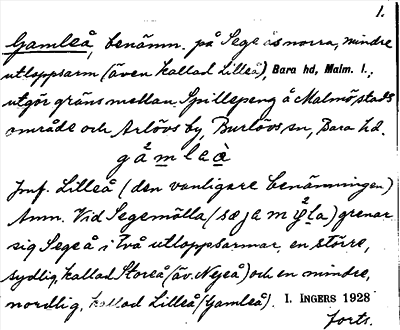 1.
Gamleå, benämn. på Segeåsnorra, mindre
utloppsarm (även kallad Lilleå), Bara hd, Malm. l.,
utgör gräns mellan Spillepeng å Malmö stads
område och Arlövs by, Burlövs sn, Bara hd.
gåmleà
Jmf. Lilleå (den vanligare benämningen)
Anm. Vid Segemölla (                ) grenar
sig Segeå i två utloppsarmar, en större,
sydlig, kallad Storeå (äv. Nyeå) och en mindre,
nordlig, kallad Lilleå (Gamleå). I. INGERS 1928
forts.